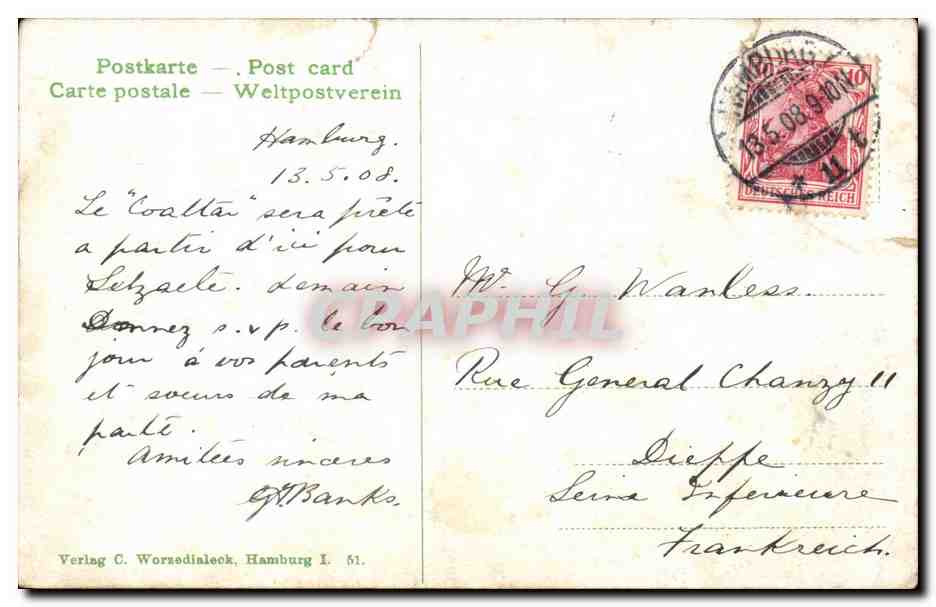 Postkarte — Post card
Carte postale — Weltpostverein
Hamburg.
13.5.08.
Le "Coaltar" sera prête
a partir d'ici pour
demain
Donnez s.v.p. le bon
jour à vos parents
et soeurs de ma
parte.
Amitées sinceres
Banks.
Verlag C. Worzedialeck, Hamburg I. 51.
HAMBURG
13.5.08.9-10N
* 11 t
10
DEUTSCHES REICH
Mr. G. Wanless.
Rue General Chanzy 11
Dieppe
Seine Inferieure
Frankreich.
CPAPHIL